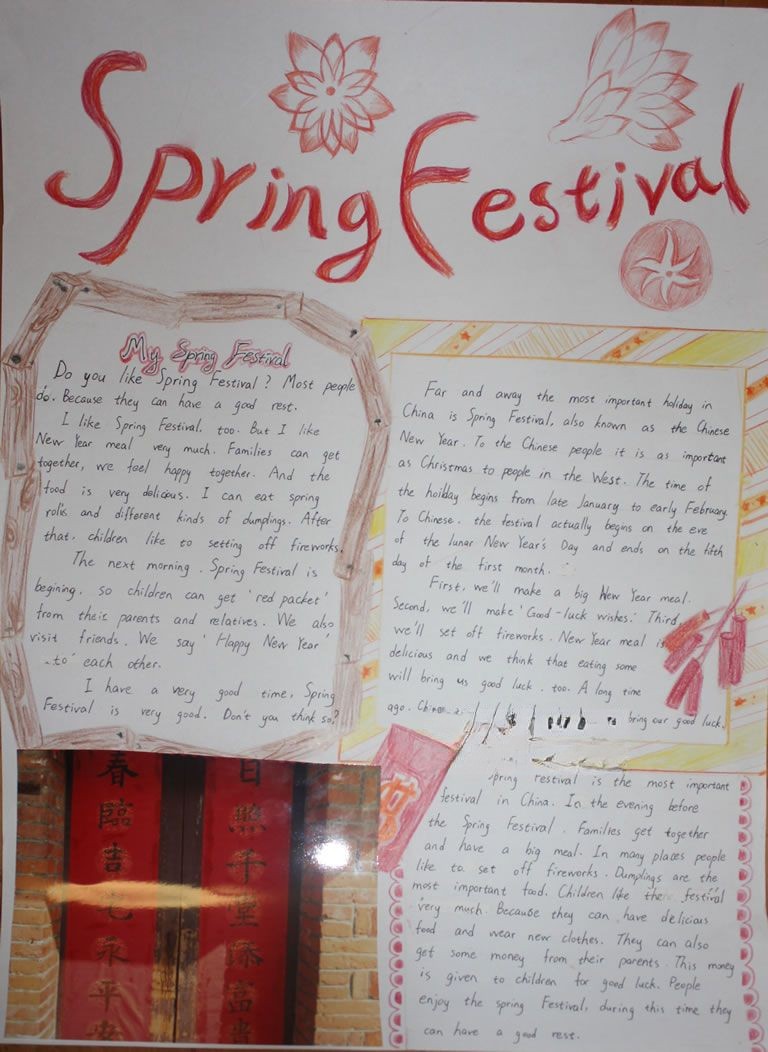 Spring Festival
My Spring Festival
Do you like Spring Festival? Most people
do. Because they can have a good rest.
I like Spring Festival. too. But I like
New Year meal very much. Families can get
together, we feel happy together. And the
food is very delicious. I can eat spring
rolls and different kinds of dumplings. After
that, children like to setting off fireworks.
The next morning. Spring Festival is
begining. so children can get 'red packet'
from their parents and relatives. We also
visit friends. We say 'Happy New Year'
to each other.
I have a very good time, Spring
Festival is very good. Don't you think so?
Far and away the most important holiday in
China is Spring Festival, also known as the Chinese
New Year. To the Chinese people it is as important
as Christmas to people in the West. The time of
the hoilday begins from late January to early February.
To Chinese. the festival actually begins on the eve
of the lunar New Year's Day and ends on the fifth
day of the first month.
First, we'll make a big New Year meal.
Second, we'll make 'Good-luck wishes.' Third,
we'll set off fireworks. New Year meal is
delicious and we think that eating some
will bring us good luck. too. A long time
ago. bring our good luck.
Spring Festival is the most important
festival in China. In the evening before
the Spring Festival. Families get together
and have a big meal. In many places people
like to set off fireworks. Dumplings are the
most important food. Children like festival
very much. Because they can have delicious
food and wear new clothes. They can also
get some money from their parents. This money
is given to children for good luck. People
enjoy the spring Festival, during this time they
can have a good rest.
春臨吉宅永平安
日照千堂添富貴